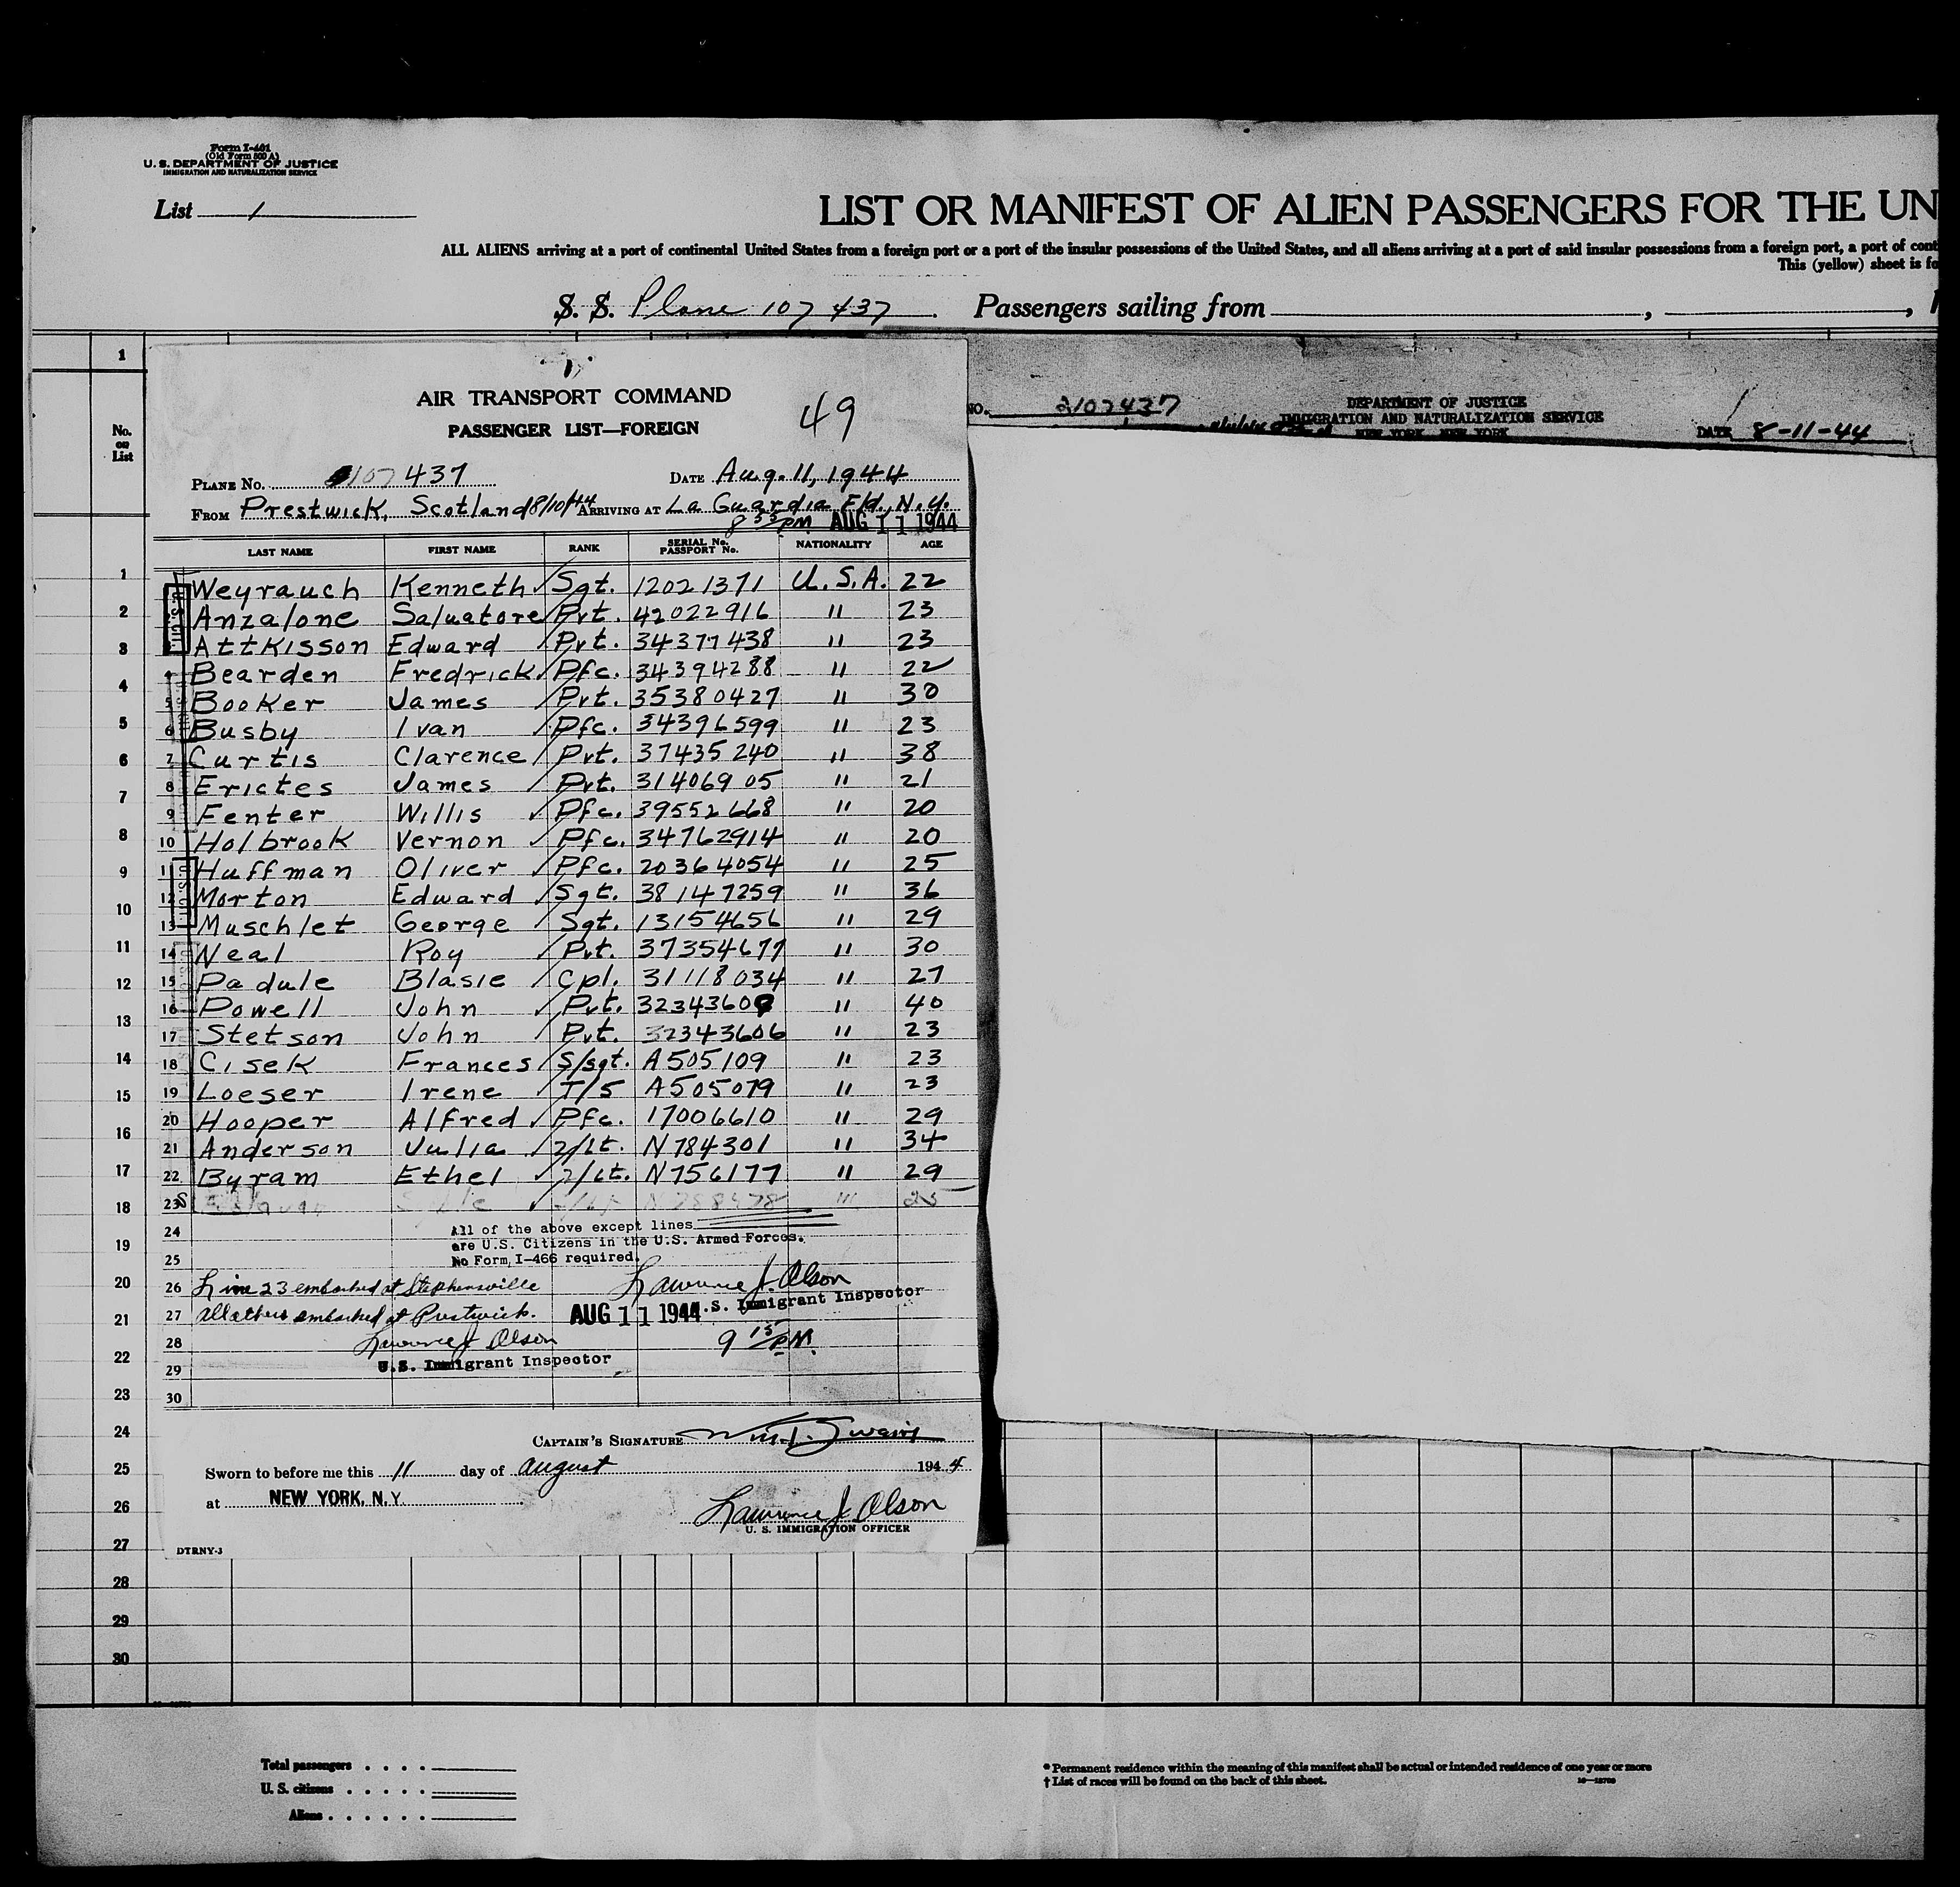 Form I-461
(Old Form 500 A)
U. S. DEPARTMENT OF JUSTICE
IMMIGRATION AND NATURALIZATION SERVICE
List 1
LIST OR MANIFEST OF ALIEN PASSENGERS FOR THE UN
ALL ALIENS arriving at a port of continental United States from a foreign port or a port of the insular possessions of the United States, and all aliens arriving at a port of said insular possessions from a foreign port, a port of cont
This (yellow) sheet is fo
S. S. Plane 107437. Passengers sailing from , ,
1
No. on List
AIR TRANSPORT COMMAND
49
PASSENGER LIST—FOREIGN
PLANE No. 107437 DATE Aug. 11, 1944
FROM Prestwick, Scotland 8/10/44 ARRIVING AT La Guardia Fld., N.Y.
8 35 PM AUG 11 1944
LAST NAME FIRST NAME RANK SERIAL No. PASSPORT No. NATIONALITY AGE
Weyrauch Kenneth Sgt. 12021371 U.S.A. 22
Anzalone Salvatore Pvt. 42022916 " 23
Attkisson Edward Pvt. 34377438 " 23
Bearden Fredrick Pfc. 34394288 " 22
5 Booker James Pvt. 35380427 " 30
6 Busby Ivan Pfc. 34396599 " 23
7 Curtis Clarence Pvt. 37435240 " 38
8 Erictes James Pvt. 31406905 " 21
9 Fenter Willis Pfc. 39552668 " 20
10 Holbrook Vernon Pfc. 34762914 " 20
11 Huffman Oliver Pfc. 20364054 " 25
12 Morton Edward Sgt. 38147259 " 36
13 Muschlet George Sgt. 13154656 " 29
14 Neal Roy Pvt. 37354677 " 30
15 Padule Blasie Cpl. 31118034 " 27
16 Powell John Pvt. 3234360 " 40
17 Stetson John Pvt. 32343606 " 23
18 Cisek Frances S/sgt. A505109 " 23
19 Loeser Irene T/5 A505079 " 23
20 Hooper Alfred Pfc. 17006610 " 29
21 Anderson Julia 2/Lt. N784301 " 34
22 Byram Ethel 2/Lt. N756177 " 29
23 N788478 " 25
24 All of the above except lines
are U.S. Citizens in the U.S. Armed Forces.
25 No Form I-466 required.
26 Line 23 embarked at Stephensville Lawrence J. Olson
27 All others embarked at Prestwick. AUG 11 1944 U.S. Immigrant Inspector
28 Lawrence J Olson 9 15 PM.
29 U.S. Immigrant Inspector
30
CAPTAIN'S SIGNATURE Wm. J. Swain
Sworn to before me this 11 day of August 1944
at NEW YORK, N.Y.
Lawrence J Olson
U. S. IMMIGRATION OFFICER
DTRNY-J
NO. 2107437
DEPARTMENT OF JUSTICE
IMMIGRATION AND NATURALIZATION SERVICE
NEW YORK, NEW YORK
DATE 8-11-44
1
2
3
4
5
6
7
8
9
10
11
12
13
14
15
16
17
18
19
20
21
22
23
24
25
26
27
28
29
30
Total passengers . . . .
U. S. citizens . . . . .
Aliens . . . . . .
* Permanent residence within the meaning of this manifest shall be actual or intended residence of one year or more
† List of races will be found on the back of this sheet.